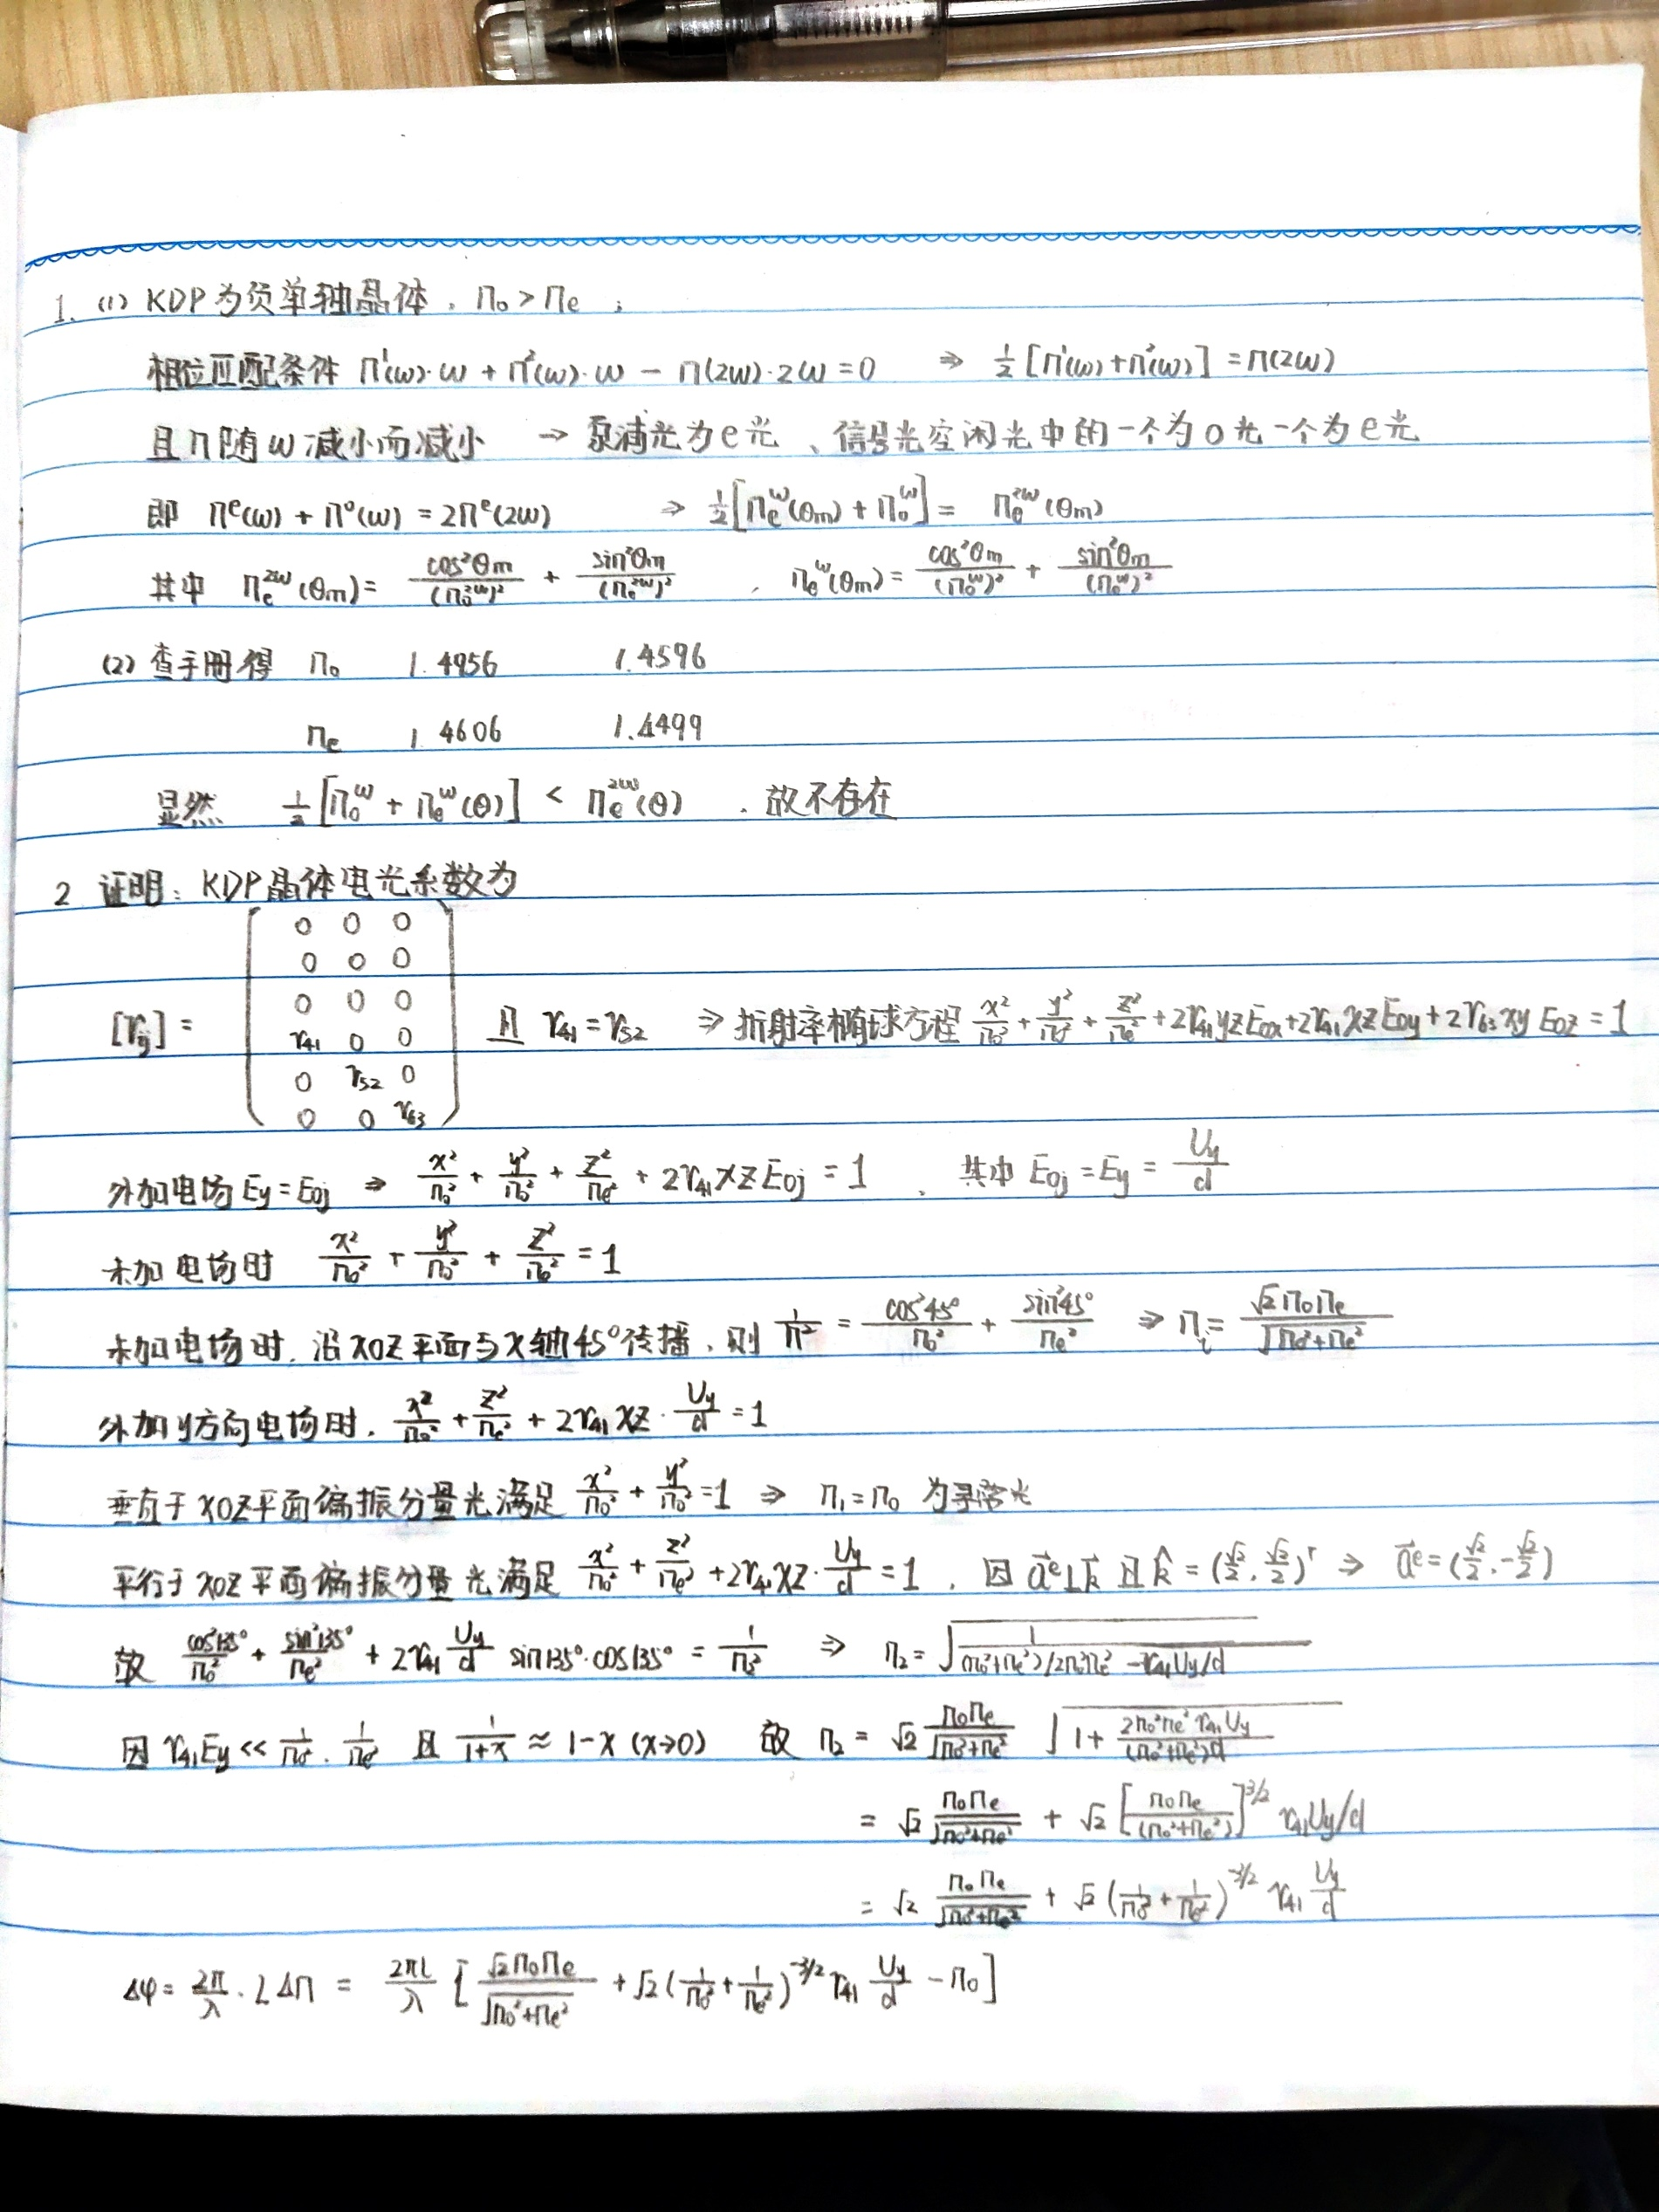 1. (1) KDP为负单轴晶体，n₀ > nₑ；
相位匹配条件 n¹(ω)·ω + n²(ω)·ω − n(2ω)·2ω = 0 ⇒ ½[n¹(ω)+n²(ω)] = n(2ω)
且n随ω减小而减小 → 泵浦光为e光、信号光空闲光中的一个为o光一个为e光
即 nᵉ(ω) + n⁰(ω) = 2nᵉ(2ω) ⇒ ½[nₑ^ω(θm) + n₀^ω] = nₑ^2ω(θm)
其中 nₑ^2ω(θm) = cos²θm/(n₀^2ω)² + sin²θm/(nₑ^2ω)² ，nₑ^ω(θm) = cos²θm/(n₀^ω)² + sin²θm/(nₑ^ω)²
(2) 查手册得 n₀ 1.4956 1.4596
nₑ 1.4606 1.4499
显然 ½[n₀^ω + nₑ^ω(θ)] < nₑ^2ω(θ) ，故不存在
2 证明：KDP晶体电光系数为
0 0 0
0 0 0
0 0 0
[rij] = r41 0 0 且 r41 = r52 ⇒ 折射率椭球方程 x²/n₀² + y²/n₀² + z²/nₑ² + 2r41yzE0x + 2r41xzE0y + 2r63xyE0z = 1
0 r52 0
0 0 r63
外加电场Ey = E0j ⇒ x²/n₀² + y²/n₀² + z²/nₑ² + 2r41xzE0j = 1 ，其中 E0j = Ey = Uy/d
未加电场时 x²/n₀² + y²/n₀² + z²/nₑ² = 1
未加电场时，沿xoz平面与x轴45°传播，则 1/n² = cos²45°/n₀² + sin²45°/nₑ² ⇒ nᵢ = √2n₀nₑ/√(n₀²+nₑ²)
外加y方向电场时，x²/n₀² + z²/nₑ² + 2r41xz·Uy/d = 1
垂直于xoz平面偏振分量光满足 x²/n₀² + y²/n₀² = 1 ⇒ n₁ = n₀ 为寻常光
平行于xoz平面偏振分量光满足 x²/n₀² + z²/nₑ² + 2r41xz·Uy/d = 1 ，因 a⃗ᵉ⊥k⃗ 且 k̂ = (√2/2, √2/2)ᵀ ⇒ a⃗ᵉ = (√2/2, −√2/2)
故 cos²135°/n₀² + sin²135°/nₑ² + 2r41 Uy/d sin135°·cos135° = 1/n₂² ⇒ n₂ = √(1/((n₀²+nₑ²)/2n₀²nₑ² − r41Uy/d))
因 r41Ey << 1/n₀², 1/nₑ² 且 1/(1+x) ≈ 1−x (x→0) 故 n₂ = √2 n₀nₑ/√(n₀²+nₑ²) √(1 + 2n₀²nₑ²r41Uy/((n₀²+nₑ²)d))
= √2 n₀nₑ/√(n₀²+nₑ²) + √2 [n₀nₑ/(n₀²+nₑ²)]^3/2 r41Uy/d
= √2 n₀nₑ/√(n₀²+nₑ²) + √2 (1/n₀² + 1/nₑ²)^−3/2 r41 Uy/d
Δφ = 2π/λ · LΔn = 2πL/λ [√2n₀nₑ/√(n₀²+nₑ²) + √2(1/n₀² + 1/nₑ²)^−3/2 r41 Uy/d − n₀]